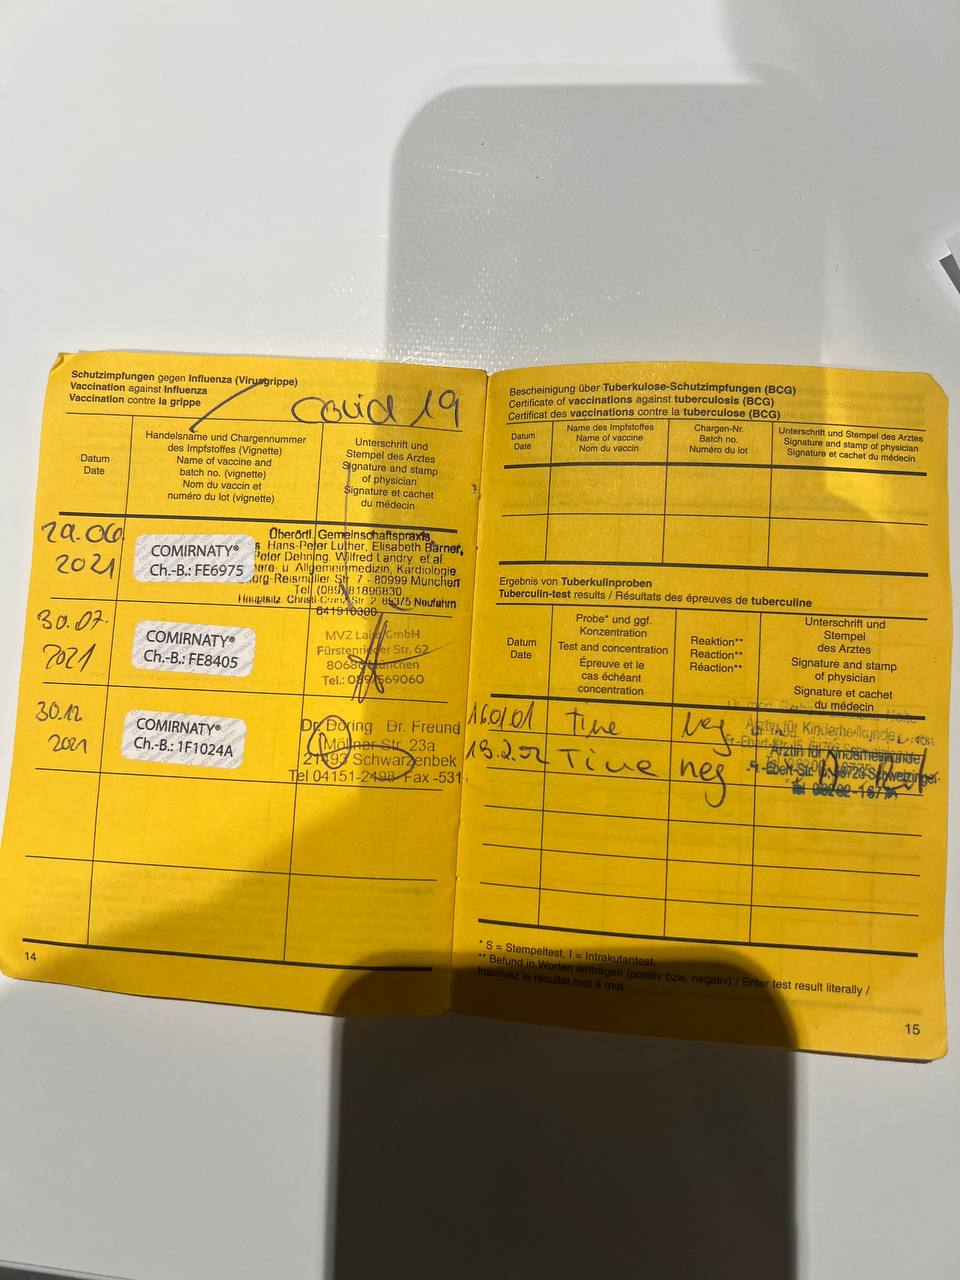 Schutzimpfungen gegen Influenza (Virusgrippe)
Vaccination against Influenza
Vaccination contre la grippe
Covid 19
Datum
Date
Handelsname und Chargennummer
des Impfstoffes (Vignette)
Name of vaccine and
batch no. (vignette)
Nom du vaccin et
numéro du lot (vignette)
Unterschrift und
Stempel des Arztes
Signature and stamp
of physician
Signature et cachet
du médecin
06.
2021
COMIRNATY®
Ch.-B.: FE6975
Überörtl. Gemeinschaftspraxis
Hans-Peter Luther, Elisabeth Barner,
Peter Dehning, Wilfred Landry, et al.
u. Allgemeinmedizin, Kardiologie
Str. 7 - 80999 München
Tel. (089) 81896830
Hauptsitz: Str. 2, 85375 Neufahrn
641910300
30.07.
2021
COMIRNATY®
Ch.-B.: FE8405
MVZ GmbH
Fürstenrieder Str. 62
München
Tel.: 089/569060
30.12
2021
COMIRNATY®
Ch.-B.: 1F1024A
Dr. Döring Dr. Freund
Möllner Str. 23a
21493 Schwarzenbek
Tel 04151-2498 Fax -531
14
Bescheinigung über Tuberkulose-Schutzimpfungen (BCG)
Certificate of vaccinations against tuberculosis (BCG)
Certificat des vaccinations contre la tuberculose (BCG)
Datum
Date
Name des Impfstoffes
Name of vaccine
Nom du vaccin
Chargen-Nr.
Batch no.
Numéro du lot
Unterschrift und Stempel des Arztes
Signature and stamp of physician
Signature et cachet du médecin
Ergebnis von Tuberkulinproben
Tuberculin-test results / Résultats des épreuves de tuberculine
Datum
Date
Probe* und ggf.
Konzentration
Test and concentration
Épreuve et le
cas échéant
concentration
Reaktion**
Reaction**
Réaction**
Unterschrift und
Stempel
des Arztes
Signature and stamp
of physician
Signature et cachet
du médecin
16.01.01 Tine neg
Ärztin für Kinderheilkunde
19.2.02 Tine neg
Ärztin für Kinderheilkunde
Fr.-Ebert-Str. Schwetzingen
* S = Stempeltest, I = Intrakutantest.
** Befund in Worten eintragen (positiv bzw. negativ) / Enter test result literally /
Inscrivez le résultat mot à mot
15